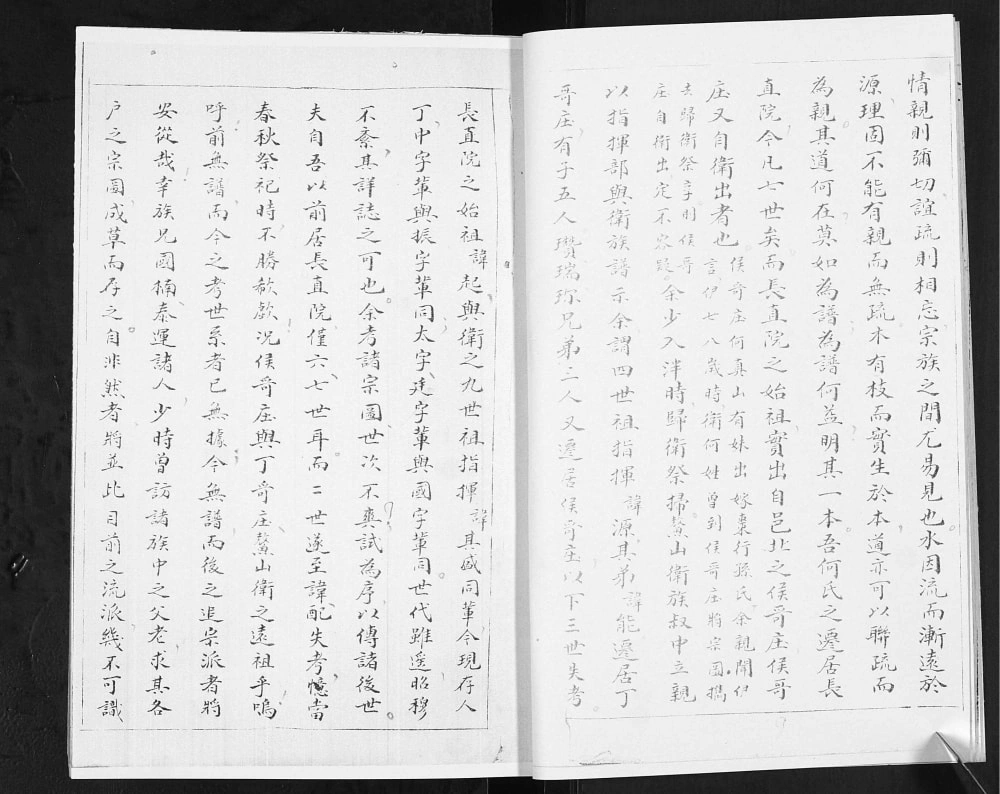 情親則彌切誼疏則相忘宗族之間尤易見也水因流而漸遠於
源理固不能有親而無疏木有枝而實生於本道亦可以聯疏而
為親其道何在莫如為譜為譜何益明其一本吾何氏之遷居長
直院今凡七世矣而長直院之始祖實出自邑北之侯哥庄侯哥
庄又自衛出者也侯哥庄何真山有妹出嫁棗行孫氏余親聞伊
言伊七八歲時衛何姓曾到侯哥庄將宗圖攜
去歸衛祭享則侯哥
庄自衛出定不容疑余少入泮時歸衛祭掃鰲山衛族叔中立親
以指揮部與衛族譜示余謂四世祖指揮諱源其弟諱能遷居丁
哥庄有子五人瓚瑞琛兄弟三人又遷居侯哥庄以下三世失考
長直院之始祖諱起與衛之九世祖指揮諱其盛同輩今現存人
丁中字輩與振字輩同太字廷字輩與國字輩同世代雖遙昭穆
不紊其詳誌之可也余考諸宗圖世次不爽試為序以傳諸後世
夫自吾以前居長直院僅六七世耳而一二世遂至諱配失考憶當
春秋祭祀時不勝欷歔況侯哥庄與丁哥庄鰲山衛之遠祖乎嗚
呼前無譜而今之考世系者已無據今無譜而後之追宗派者將
安從哉幸族兄國楠泰運諸人少時曾訪諸族中之父老求其各
户之宗圖成草而存之自非然者將並此目前之流派幾不可識